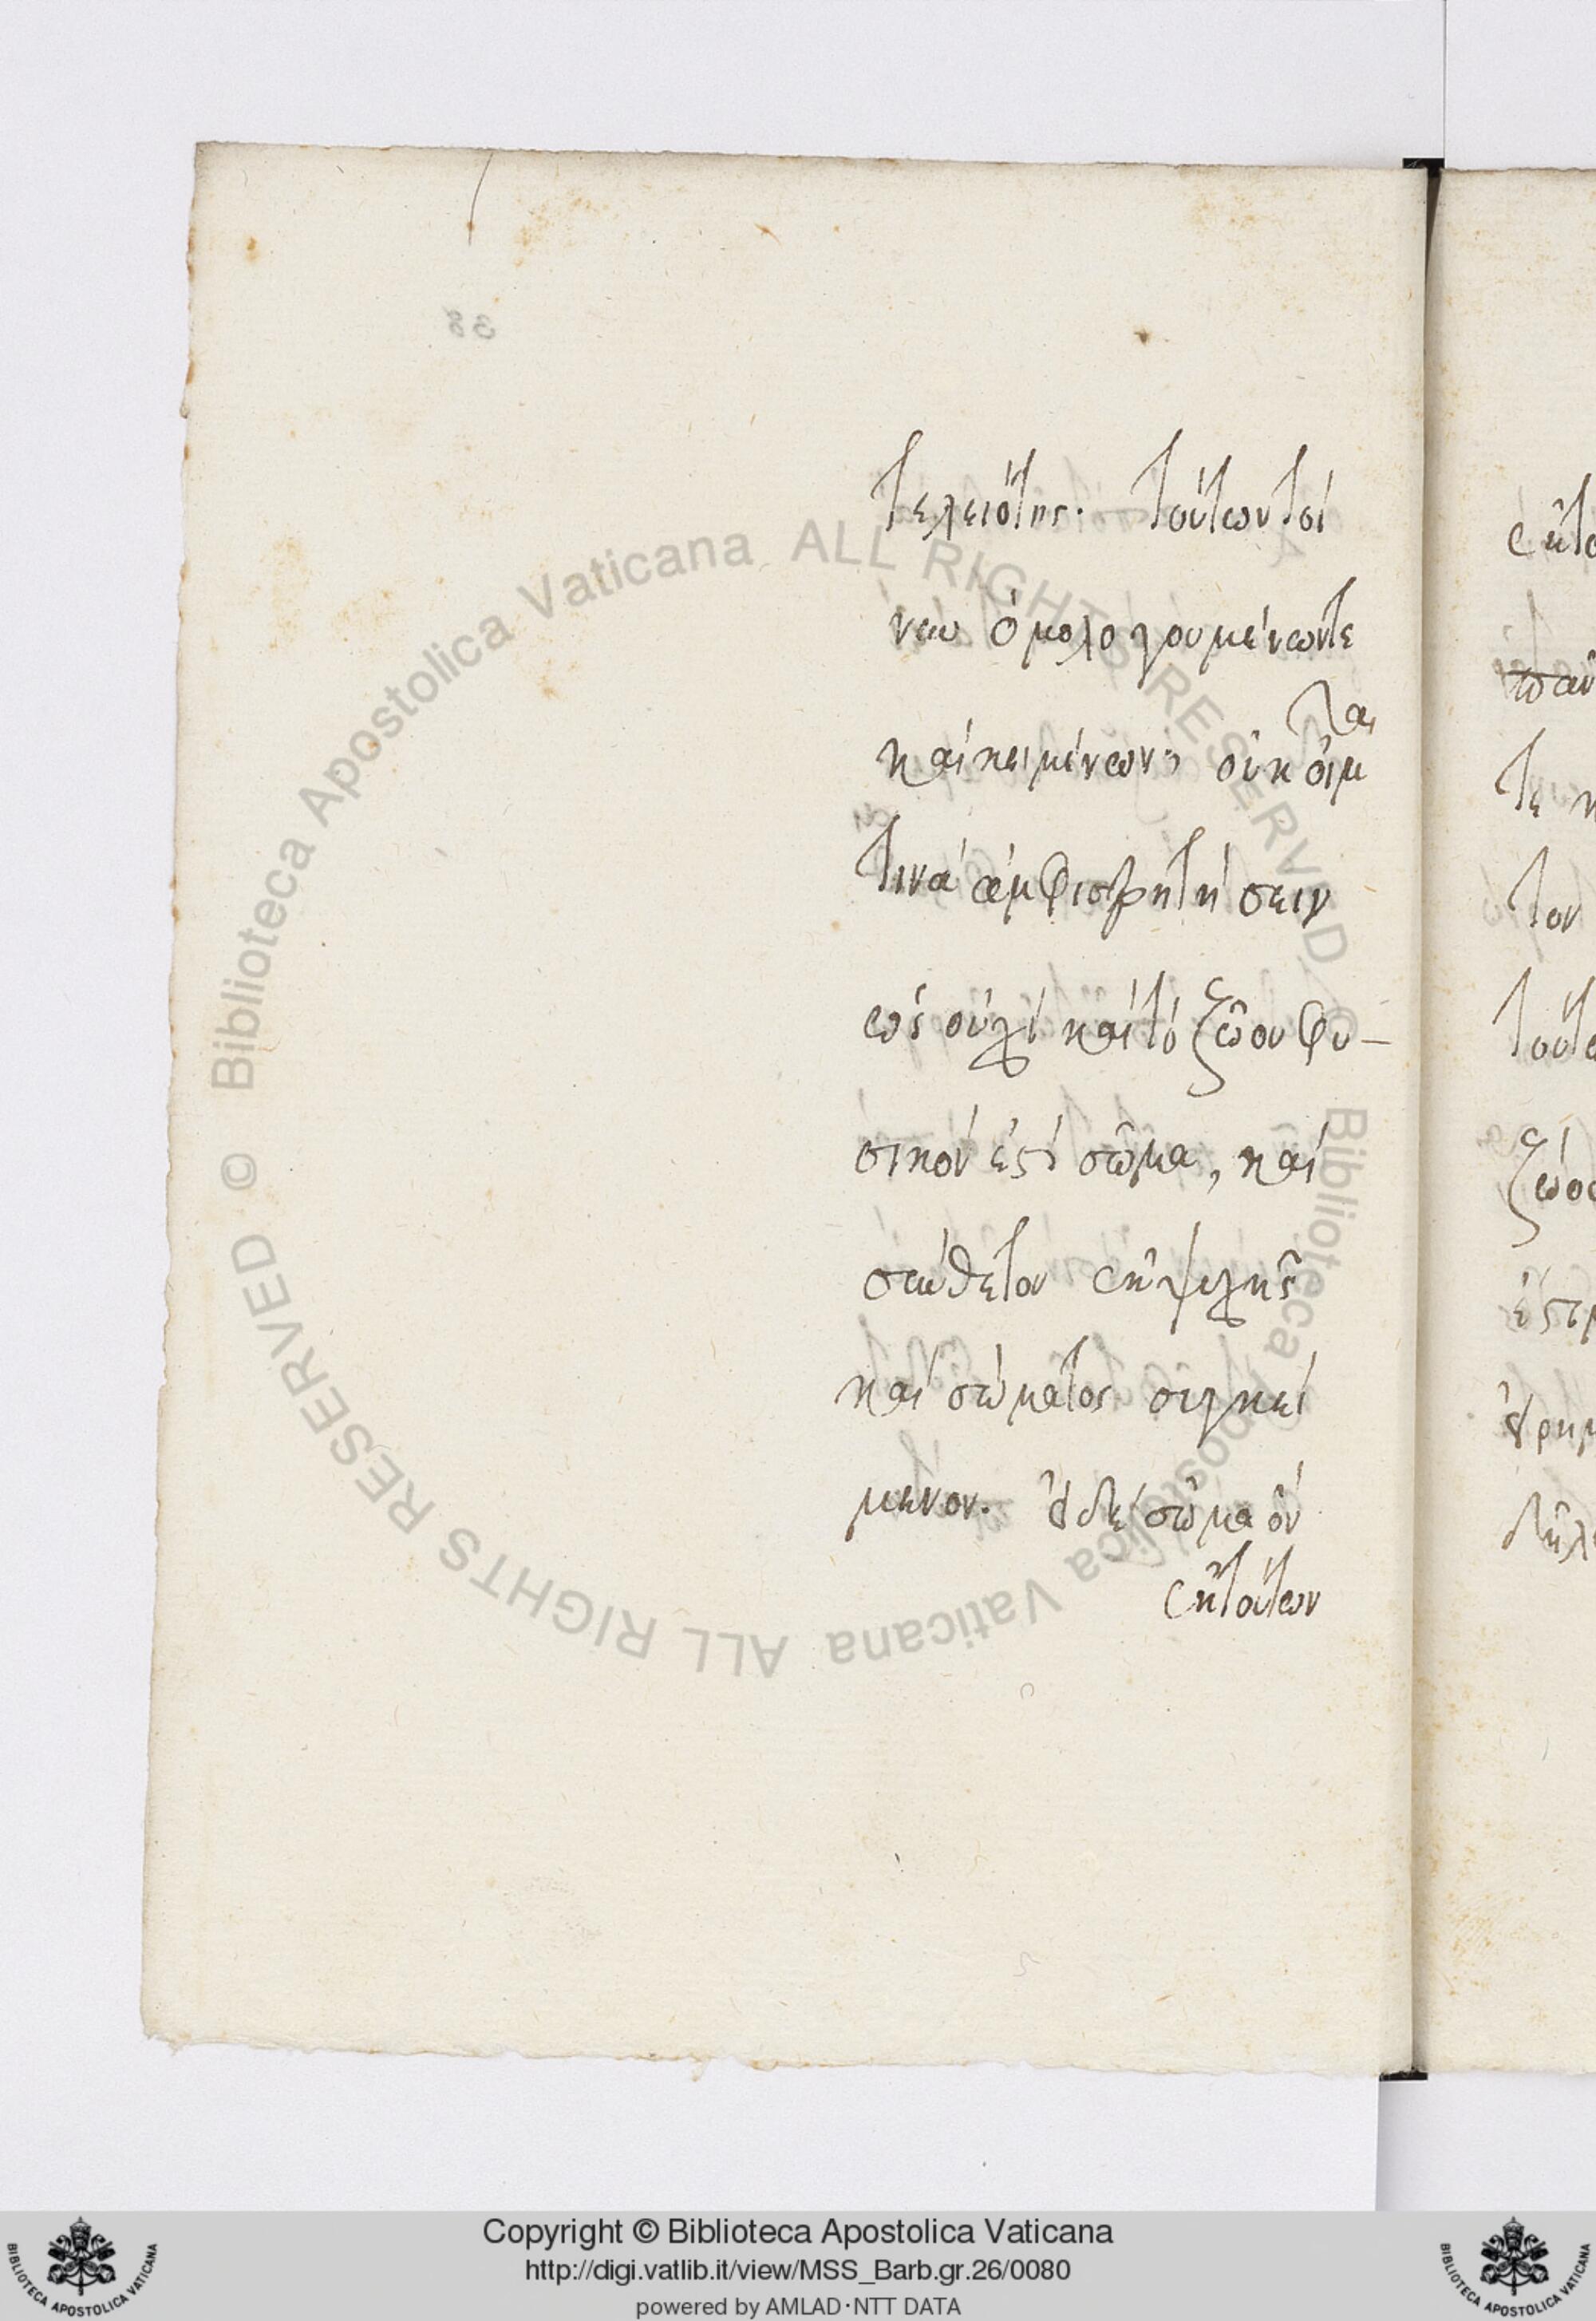 38
τελειότης. τούτων τοί
νυν ὁμολογουμένων τε
καὶ κειμένων, οὐκ οἶμαι
τινὰ ἀμφισβητήσειν
ὡς οὐχὶ καὶ τὸ ζῶον φυ-
σικόν ἐστι σῶμα, καὶ
σύνθετον ἐκ ψυχῆς
καὶ σώματος συγκεί
μενον. τὸ δὲ σῶμα ὂν
ἐκ τούτων
ἐκ το
παν
τε κ
τον
τούτ
ζώο
δῆλ
Biblioteca Apostolica Vaticana ALL RIGHTS RESERVED ©
Biblioteca Apostolica Vaticana ALL RIGHTS RESERVED ©
Copyright © Biblioteca Apostolica Vaticana
http://digi.vatlib.it/view/MSS_Barb.gr.26/0080
powered by AMLAD·NTT DATA
BIBLIOTECA APOSTOLICA VATICANA
BIBLIOTECA APOSTOLICA VATICANA